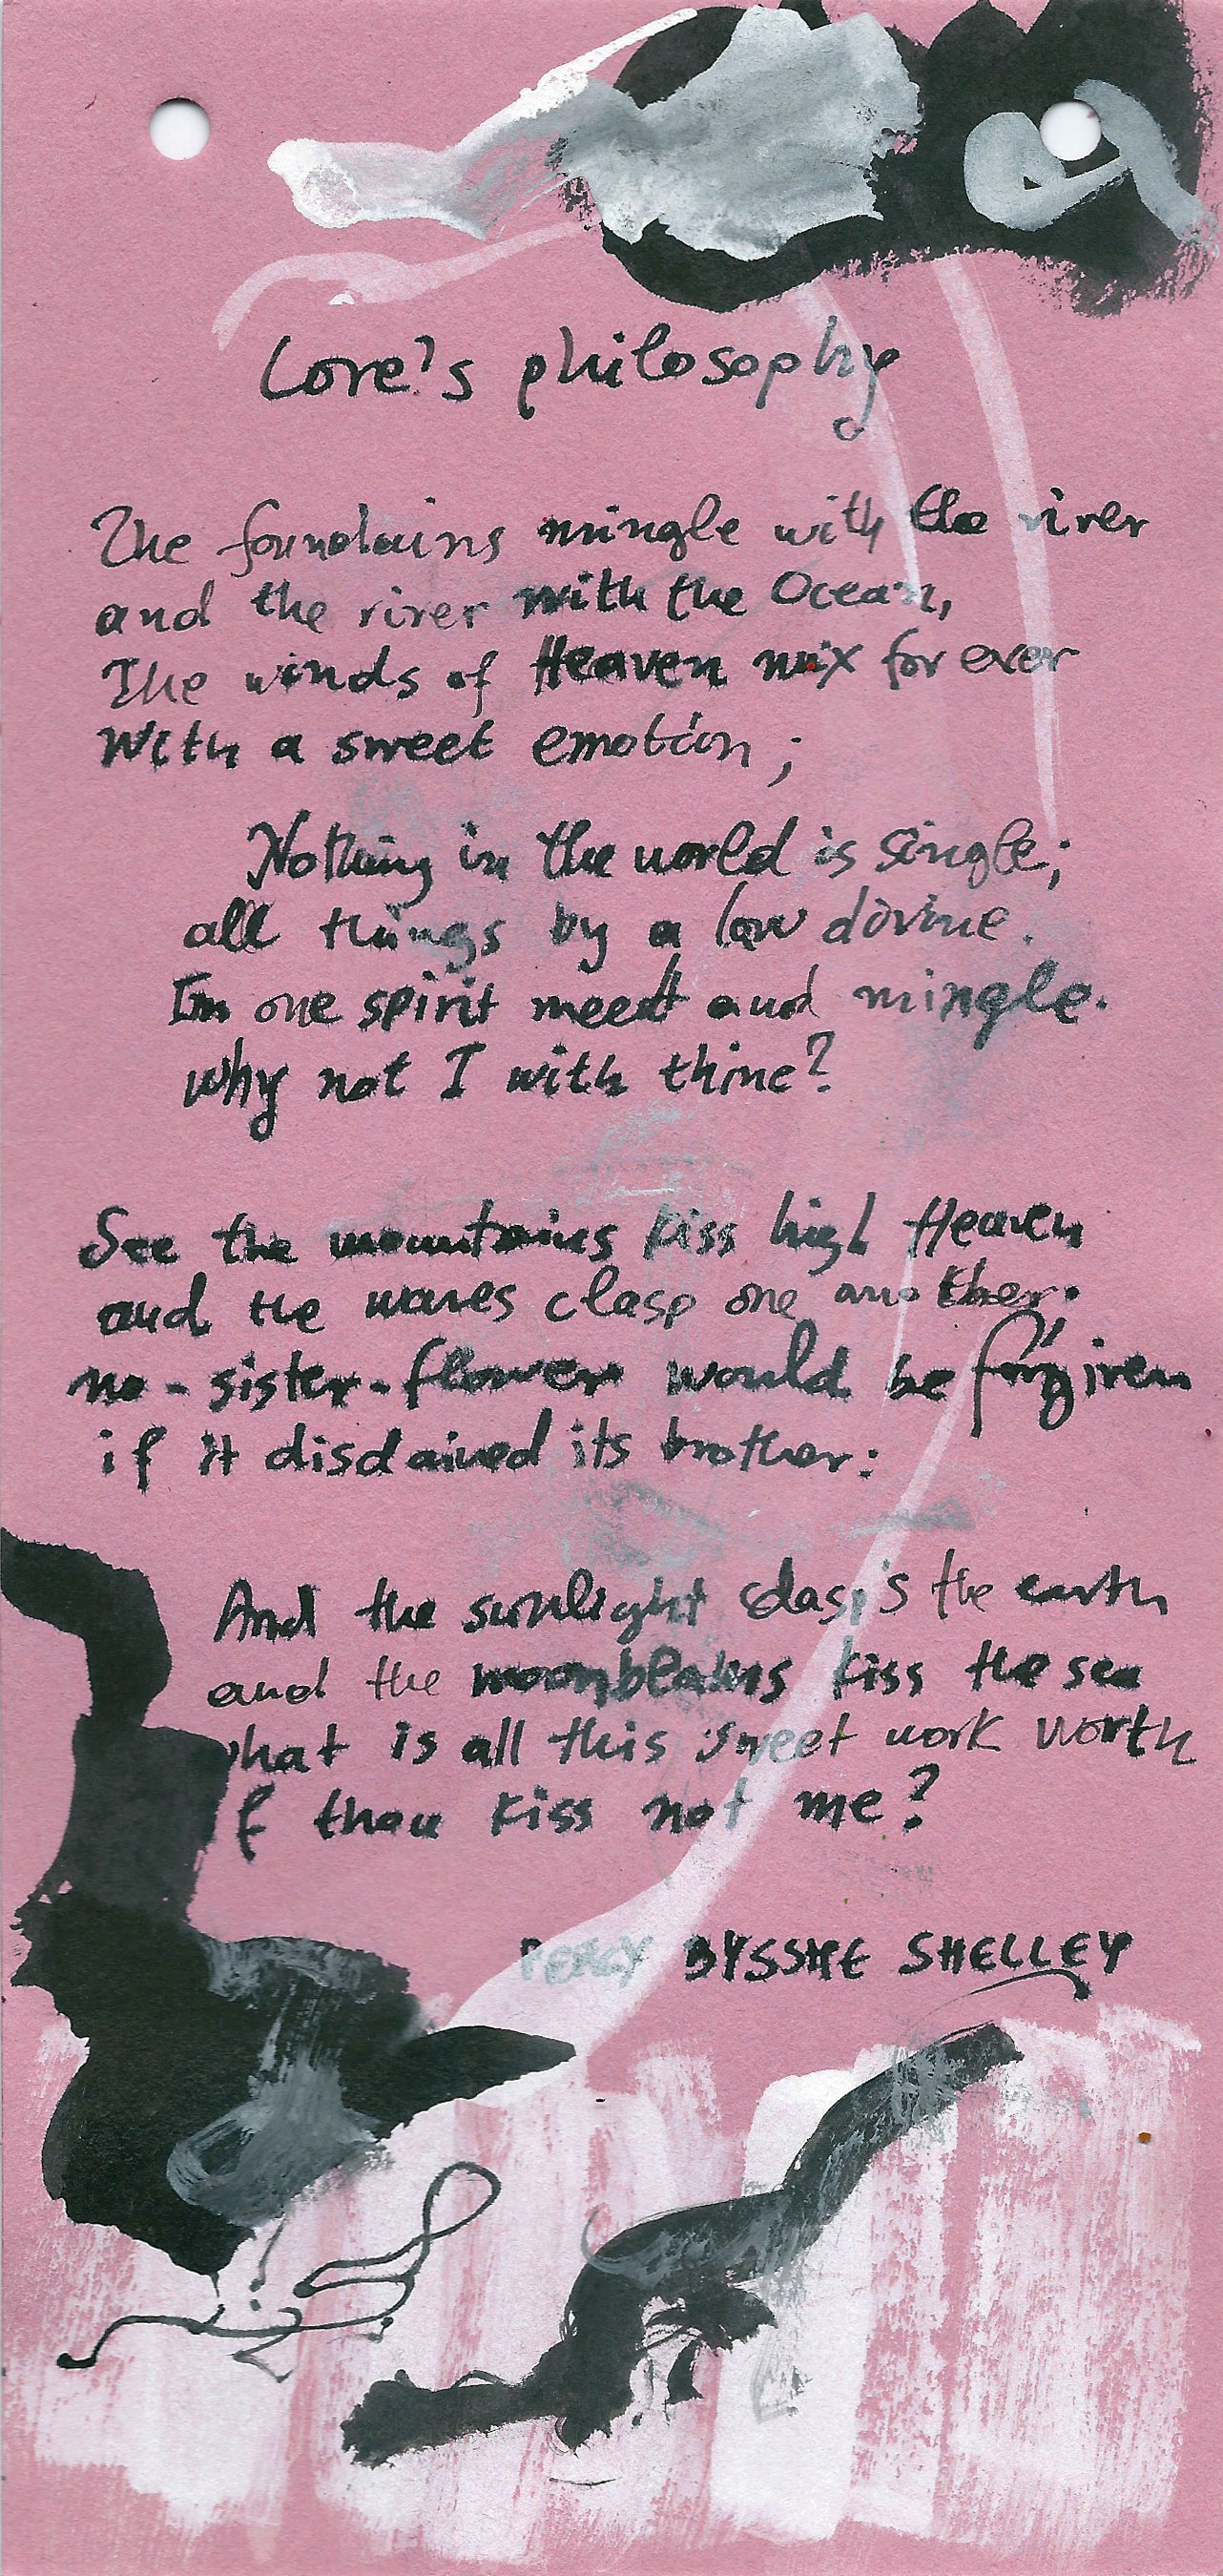 Love's philosophy
The fountains mingle with the river
and the river with the Ocean,
The winds of Heaven mix for ever
With a sweet emotion;
Nothing in the world is single;
all things by a law divine.
In one spirit meet and mingle.
why not I with thine?
See the mountains kiss high Heaven
and the waves clasp one another.
no-sister-flower would be forgiven
if it disdained its brother:
And the sunlight clasps the earth
and the moonbeams kiss the sea
what is all this sweet work worth
if thou kiss not me?
PERCY BYSSHE SHELLEY